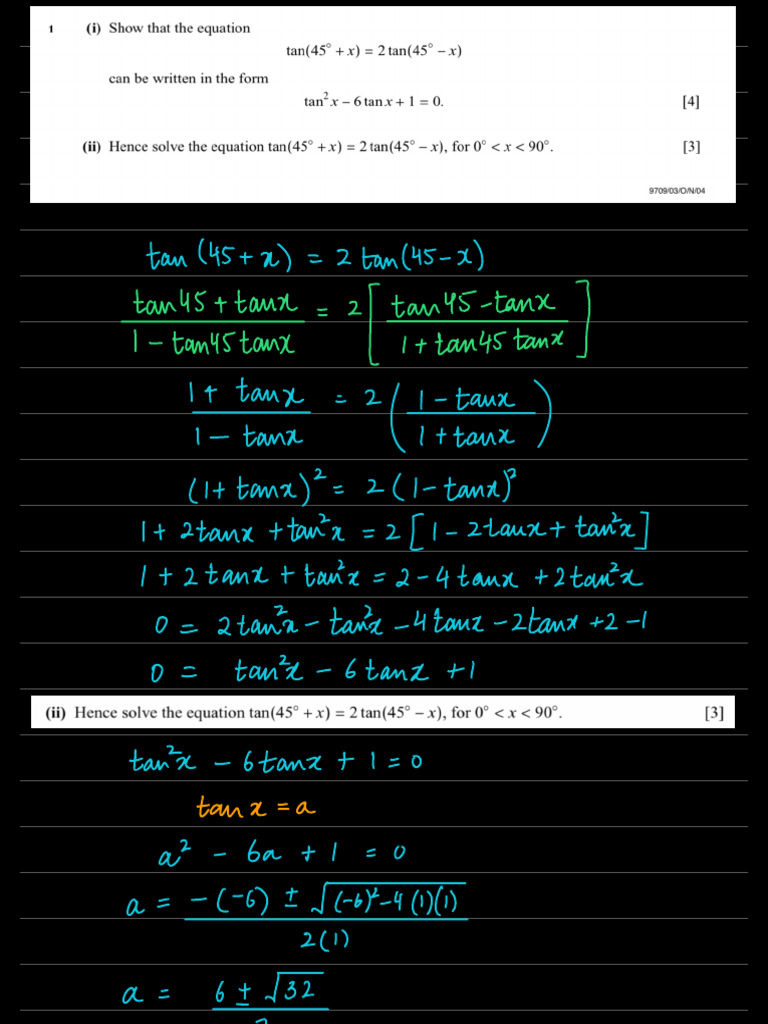 1 (i) Show that the equation
tan(45° + x) = 2 tan(45° − x)
can be written in the form
tan² x − 6 tan x + 1 = 0. [4]
(ii) Hence solve the equation tan(45° + x) = 2 tan(45° − x), for 0° < x < 90°. [3]
9709/03/O/N/04
tan (45 + x) = 2 tan (45 - x)
tan45 + tanx / 1 - tan45 tanx = 2 [ tan45 - tanx / 1 + tan45 tanx ]
1 + tanx / 1 - tanx = 2 ( 1 - tanx / 1 + tanx )
(1 + tanx)² = 2 (1 - tanx)²
1 + 2tanx + tan²x = 2 [ 1 - 2tanx + tan²x ]
1 + 2tanx + tan²x = 2 - 4tanx + 2tan²x
0 = 2tan²x - tan²x - 4tanx - 2tanx + 2 - 1
0 = tan²x - 6tanx + 1
(ii) Hence solve the equation tan(45° + x) = 2 tan(45° − x), for 0° < x < 90°. [3]
tan²x - 6tanx + 1 = 0
tan x = a
a² - 6a + 1 = 0
a = -(-6) ± √(-6)² - 4(1)(1) / 2(1)
a = 6 ± √32